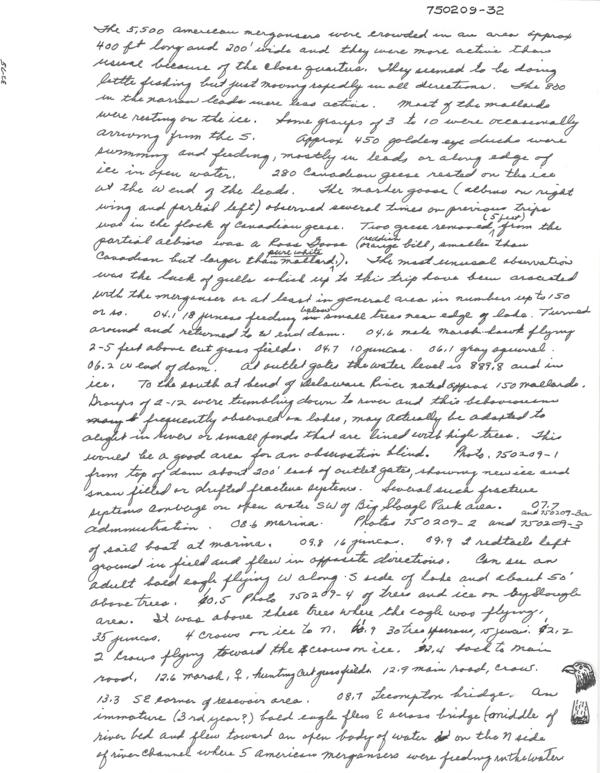 750209-32
The 5,500 american mergansers were crowded in an area approx
400 ft long and 200' wide and they were more active than
usual because of the close quarters. They seemed to be doing
little fishing but just moving rapidly in all directions. The 800
in the narrow leads were less active. Most of the mallards
were resting on the ice. Some groups of 3 to 10 were occasionally
arriving from the S. Approx 450 golden eye ducks were
swimming and feeding, mostly in leads or along edge of
ice in open water. 280 Canadian geese rested on the ice
at the W end of the leads. The marker goose (albino on right
wing and partial left) observed several times on previous trips
was in the flock of Canadian geese. Two geese removed (5 feet) from the
partial albino was a Ross Goose (reddish orange bill, smaller than
Canadian but larger than mallard, pure white). The most unusual observation
was the lack of gulls which up to this trip have been associated
with the merganser or at least in general area in numbers up to 150
or so. 04.1 18 juncos feeding below in small trees near edge of lake. Turned
around and returned to W end dam. 04.6 male marsh hawk flying
2-5 feet above cut grass fields. 04.7 10 juncos. 06.1 gray squirrel.
06.2 W end of dam. At outlet gates the water level is 889.8 and in
ice. To the south at bend of Delaware River noted approx 150 mallards.
Groups of 2-12 were tumbling down to river and this behaviour
frequently observed on lakes, may actually be adapted to
alight in rivers or small ponds that are lined with high trees. This
would be a good area for an observation blind. Photo. 750209-1
from top of dam about 200' east of outlet gates, showing new ice and
snow filled or drifted fracture systems. Several such fracture
systems converge on open water SW of Big Slough Park area. 07.7
administration. 08.6 marina. Photos 750209-2 and 750209-3 and 750209-3a
of sail boat at marina. 09.8 16 juncos. 09.9 2 redtails left
ground in field and flew in opposite directions. Can see an
adult bald eagle flying W along S side of lake and about 50'
above trees. 10.5 Photo 750209-4 of trees and ice on Big Slough
area. It was above these trees where the eagle was flying.
35 juncos. 4 crows on ice to N. 30 tree sparrows, 15 juncos. 12.2
2 crows flying toward the crows on ice. 12.4 back to main
road. 12.6 marsh, ♀, hunting cut grass fields. 12.9 main road, crow.
13.3 SE corner of reservoir area. 08.7 Lecompton bridge. An
immature (3rd year?) bald eagle flew E across bridge (middle of
river bed and flew toward an open body of water on the N side
of river channel where 5 american mergansers were feeding in the water